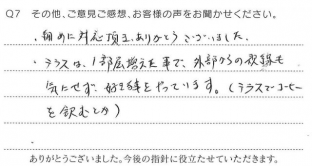 Q7 その他、ご意見ご感想、お客様の声をお聞かせください。
・細めに対応頂き、ありがとうございました。
・テラスは、1部屋増えた事で、外部からの視線も
気にせず、好き事をやっています。(テラスでコーヒー
を飲むとか)
・
ありがとうございました。今後の指針に役立たせていただきます。